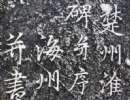 楚州淮
碑并序
海州
并書